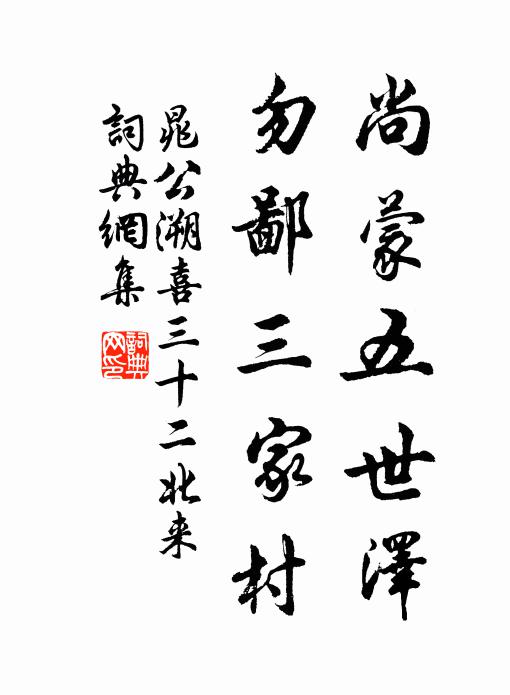 尚蒙五世澤
勿鄙三家村
晁公溯喜三十二北来
詞典網集
詞典网印